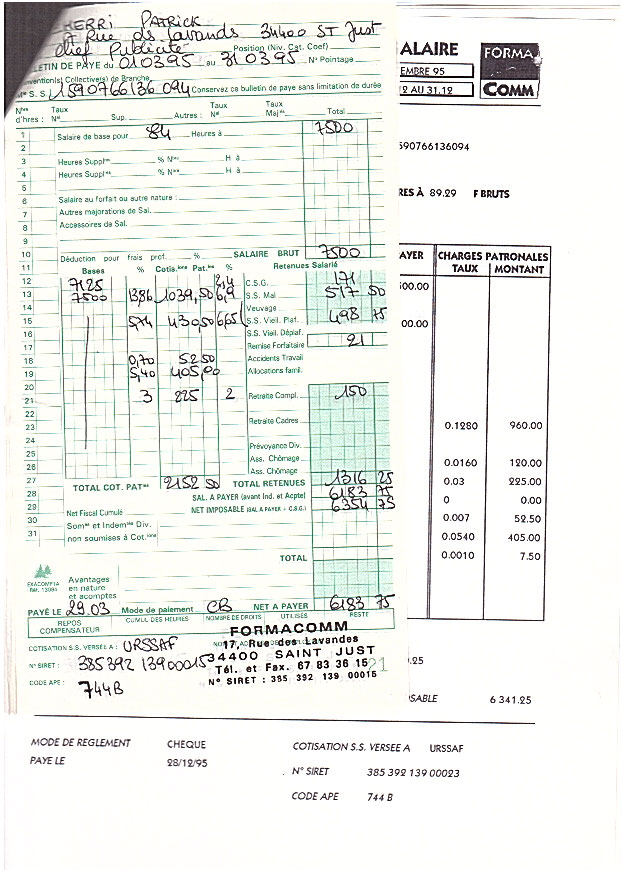 HERRI PATRICK
Rue des Lavands 34400 ST Just
chef Publicité Position (Niv. Cat. Coef)
BULLETIN DE PAYE du 010395 au 310395 N° Pointage
Convention(s) Collective(s) de Branche
N° S.S. 1590766136094 Conservez ce bulletin de paye sans limitation de durée
Nbres d'hres : Taux Nal Sup. Autres : Taux Nal Taux Maj. Total
1 Salaire de base pour 84 Heures à 7500
2
3 Heures Suppl. % Nles H à
4 Heures Suppl. % Nles H à
5
6 Salaire au forfait ou autre nature :
7 Autres majorations de Sal.
8 Accessoires de Sal.
9
10 Déduction pour frais prof. % SALAIRE BRUT 7500
11 Bases % Cotis. Pat. % Retenues Salarié
12 7125 2,4 C.S.G. 171
13 7500 13,86 1039,50 6,9 S.S. Mal 517 50
14 Veuvage
15 5,74 430,50 6,65 S.S. Vieil. Plaf. 498 75
16 S.S. Vieil. Déplaf.
17 Remise Forfaitaire 21
18 0,70 52.50 Accidents Travail
19 5,40 405,00 Allocations famil.
20
21 3 225 2 Retraite Compl. 150
22
23 Retraite Cadres
24
25 Prévoyance Div.
26 Ass. Chômage
Ass. Chômage
27 TOTAL COT. PAT 2152 50 TOTAL RETENUES 1316 25
28 SAL. A PAYER (avant Ind. et Acpte) 6183 75
29 Net Fiscal Cumulé NET IMPOSABLE (SAL A PAYER + C.S.G.) 6354 75
30 Somes et Indemtés Div.
31 non soumises à Cot.
TOTAL
EXACOMPTA
Réf. 13094
Avantages
en nature
et acomptes
PAYÉ LE 29.03 Mode de paiement CB NET A PAYER 6183 75
REPOS COMPENSATEUR CUMUL DES HEURES NOMBRE DE DROITS UTILISÉS RESTE
COTISATION S.S. VERSÉE A : URSSAF
N° SIRET : 385392 13900015
CODE APE : 744B
FORMACOMM
17, Rue des Lavandes
34400 SAINT JUST
Tél. et Fax. 67 83 36 15
N° SIRET : 385 392 139 00015
21
ALAIRE
FORMA
COMM
EMBRE 95
2 AU 31.12
590766136094
RES À 89.29 F BRUTS
AYER CHARGES PATRONALES
TAUX MONTANT
500.00
00.00
0.1280 960.00
0.0160 120.00
0.03 225.00
0 0.00
0.007 52.50
0.0540 405.00
0.0010 7.50
0.25
OSABLE 6 341.25
MODE DE REGLEMENT CHEQUE
PAYE LE 28/12/95
COTISATION S.S. VERSEE A URSSAF
N° SIRET 385 392 139 00023
CODE APE 744 B